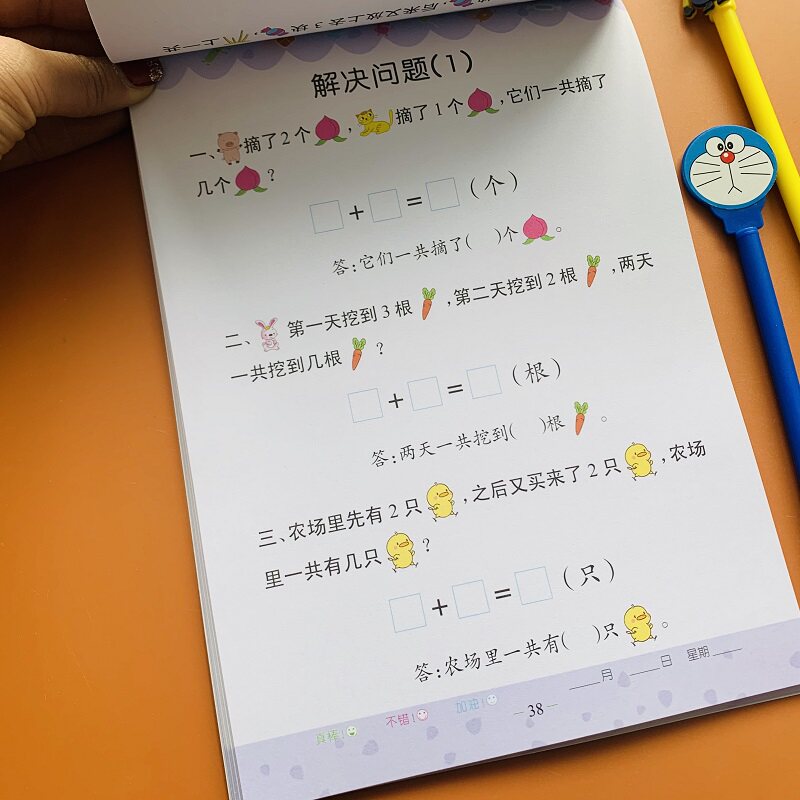 后来又放上去3块
上一共
解决问题(1)
一、摘了2个，摘了1个，它们一共摘了
几个？
+ = (个)
答:它们一共摘了( )个。
二、第一天挖到3根，第二天挖到2根，两天
一共挖到几根？
+ = (根)
答:两天一共挖到( )根。
三、农场里先有2只，之后又买来了2只，农场
里一共有几只？
+ = (只)
答:农场里一共有( )只。
真棒! 不错! 加油! 月 日 星期
38